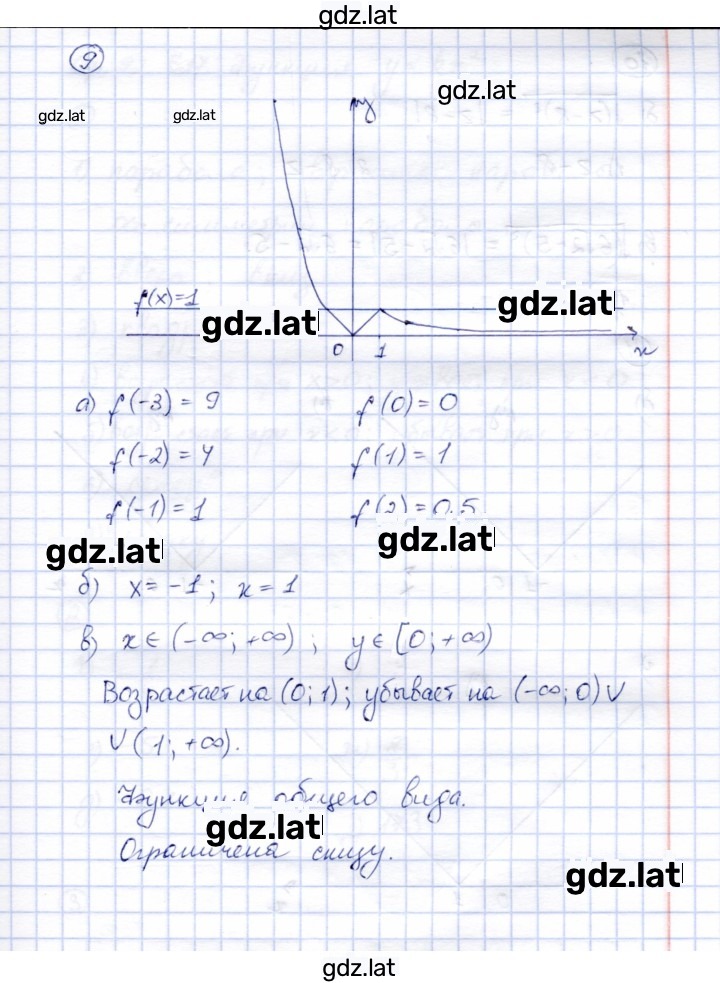 gdz.lat
9
gdz.lat
gdz.lat gdz.lat
y
f(x)=1
gdz.lat
gdz.lat
0 1 x
а) f(-3) = 9 f(0) = 0
f(-2) = 4 f(1) = 1
f(-1) = 1 f(2) = 0.5
gdz.lat gdz.lat
б) x = -1; x = 1
в) x ∈ (-∞; +∞); y ∈ [0; +∞)
Возрастает на (0; 1); убывает на (-∞; 0) ∪
∪ (1; +∞).
Функция общего вида.
gdz.lat
Ограничена снизу.
gdz.lat
gdz.lat